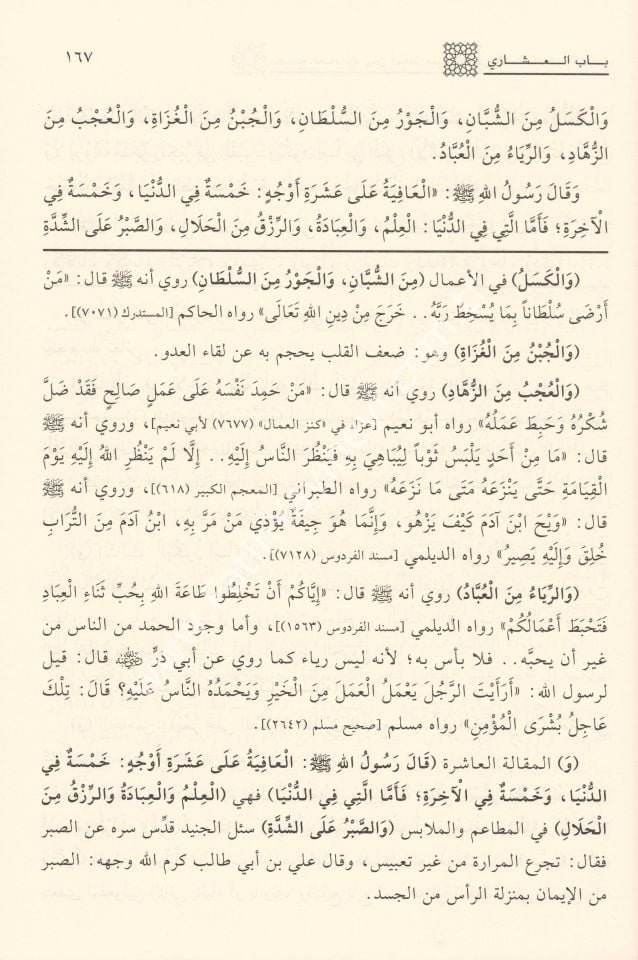 باب العشاري
١٦٧
وَالْكَسَلُ مِنَ الشُّبَّانِ، وَالْجَوْرُ مِنَ السُّلْطَانِ، وَالْجُبْنُ مِنَ الْغُزَاةِ، وَالْعُجْبُ مِنَ
الزُّهَّادِ، وَالرِّيَاءُ مِنَ الْعُبَّادِ.
وَقَالَ رَسُولُ اللهِ ﷺ: «الْعَافِيَةُ عَلَى عَشَرَةِ أَوْجُهٍ: خَمْسَةٌ فِي الدُّنْيَا، وَخَمْسَةٌ فِي
الْآخِرَةِ؛ فَأَمَّا الَّتِي فِي الدُّنْيَا: الْعِلْمُ، وَالْعِبَادَةُ، وَالرِّزْقُ مِنَ الْحَلَالِ، وَالصَّبْرُ عَلَى الشِّدَّةِ
(وَالْكَسَلُ) في الأعمال (مِنَ الشُّبَّانِ، وَالْجَوْرُ مِنَ السُّلْطَانِ) روي أنه ﷺ قال: «مَنْ
أَرْضَى سُلْطَاناً بِمَا يُسْخِطُ رَبَّهُ.. خَرَجَ مِنْ دِينِ اللهِ تَعَالَى» رواه الحاكم [المستدرك (٧٠٧١)].
(وَالْجُبْنُ مِنَ الْغُزَاةِ) وهو: ضعف القلب يحجم به عن لقاء العدو.
(وَالْعُجْبُ مِنَ الزُّهَّادِ) روي أنه ﷺ قال: «مَنْ حَمِدَ نَفْسَهُ عَلَى عَمَلٍ صَالِحٍ فَقَدْ ضَلَّ
شُكْرُهُ وَحَبِطَ عَمَلُهُ» رواه أبو نعيم [عزاه في «كنز العمال» (٧٦٧٧) لأبي نعيم]، وروي أنه ﷺ
قال: «مَا مِنْ أَحَدٍ يَلْبَسُ ثَوْباً لِيُبَاهِيَ بِهِ فَيَنْظُرَ النَّاسُ إِلَيْهِ.. إِلَّا لَمْ يَنْظُرِ اللهُ إِلَيْهِ يَوْمَ
الْقِيَامَةِ حَتَّى يَنْزِعَهُ مَتَى مَا نَزَعَهُ» رواه الطبراني [المعجم الكبير (٦١٨)]، وروي أنه ﷺ
قال: «وَيْحَ ابْنَ آدَمَ كَيْفَ يَزْهُو، وَإِنَّمَا هُوَ جِيفَةٌ يُؤْذِي مَنْ مَرَّ بِهِ، ابْنُ آدَمَ مِنَ التُّرَابِ
خُلِقَ وَإِلَيْهِ يَصِيرُ» رواه الديلمي [مسند الفردوس (٧١٢٨)].
(وَالرِّيَاءُ مِنَ الْعُبَّادِ) روي أنه ﷺ قال: «إِيَّاكُمْ أَنْ تَخْلِطُوا طَاعَةَ اللهِ بِحُبِّ ثَنَاءِ الْعِبَادِ
فَتَحْبَطَ أَعْمَالُكُمْ» رواه الديلمي [مسند الفردوس (١٥٦٣)]، وأما وجود الحمد من الناس من
غير أن يحبَّه.. فلا بأس به؛ لأنه ليس رياء كما روي عن أبي ذرٍّ ﷺ قال: قيل
لرسول الله: «أَرَأَيْتَ الرَّجُلَ يَعْمَلُ الْعَمَلَ مِنَ الْخَيْرِ وَيَحْمَدُهُ النَّاسُ عَلَيْهِ؟ قَالَ: تِلْكَ
عَاجِلُ بُشْرَى الْمُؤْمِنِ» رواه مسلم [صحيح مسلم (٢٦٤٢)].
(وَ) المقالة العاشرة (قَالَ رَسُولُ اللهِ ﷺ: الْعَافِيَةُ عَلَى عَشَرَةِ أَوْجُهٍ: خَمْسَةٌ فِي
الدُّنْيَا، وَخَمْسَةٌ فِي الْآخِرَةِ؛ فَأَمَّا الَّتِي فِي الدُّنْيَا) فهي (الْعِلْمُ وَالْعِبَادَةُ وَالرِّزْقُ مِنَ
الْحَلَالِ) في المطاعم والملابس (وَالصَّبْرُ عَلَى الشِّدَّةِ) سئل الجنيد قدِّس سره عن الصبر
فقال: تجرع المرارة من غير تعبيس، وقال علي بن أبي طالب كرم الله وجهه: الصبر
من الإيمان بمنزلة الرأس من الجسد.